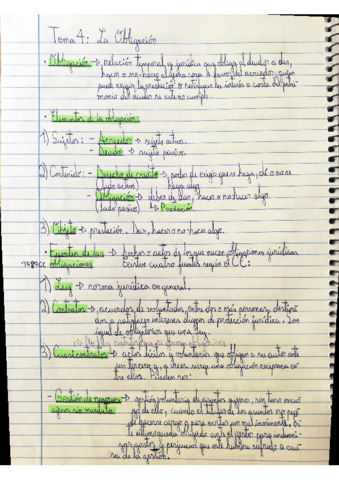 Tema 4: La Obligación
· Obligación → relación temporal y jurídica que obliga al deudor a dar,
hacer o no hacer alguna cosa a favor del acreedor, quien
puede exigir la prestación o satisfacer su interés a costa del patri
monio del deudor si este no cumple.
· Elementos de la obligación:
1) Sujetos: - Acreedor → sujeto activo.
- Deudor → sujeto pasivo.
2) Contenido: - Derecho de crédito → poder de exigir que se haga, dé o no se
(lado activo) haga algo.
- Obligación → deber de dar, hacer o no hacer algo.
(lado pasivo) ↳ Prestación.
3) Objeto → prestación. Dar, hacer o no hacer algo.
· Fuentes de las → hechos o actos de los que nacen obligaciones jurídicas.
1089CC obligaciones Existen cuatro fuentes según el CC:
1) Ley → norma jurídica en general.
2) Contratos → acuerdos de voluntades, entre dos o más personas, destina
dos a satisfacer intereses dignos de protección jurídica. Son
igual de obligatorios que una ley.
3) Cuasicontratos → actos lícitos y voluntarios que obligan a su autor ante
un tercero y, a veces surge una obligación recíproca en
tre ellos. Pueden ser:
- Gestión de negocios → gestión voluntaria de asuntos ajenos, sin tener encar
ajenos sin mandato go de ello, cuando el titular de los asuntos no pue
de hacerse cargo y para evitar un mal inminente. Si
de ella queda obligado ante el gestor para indemni
zar gastos y perjuicios que este hubiera sufrido a cau
sa de la gestión.